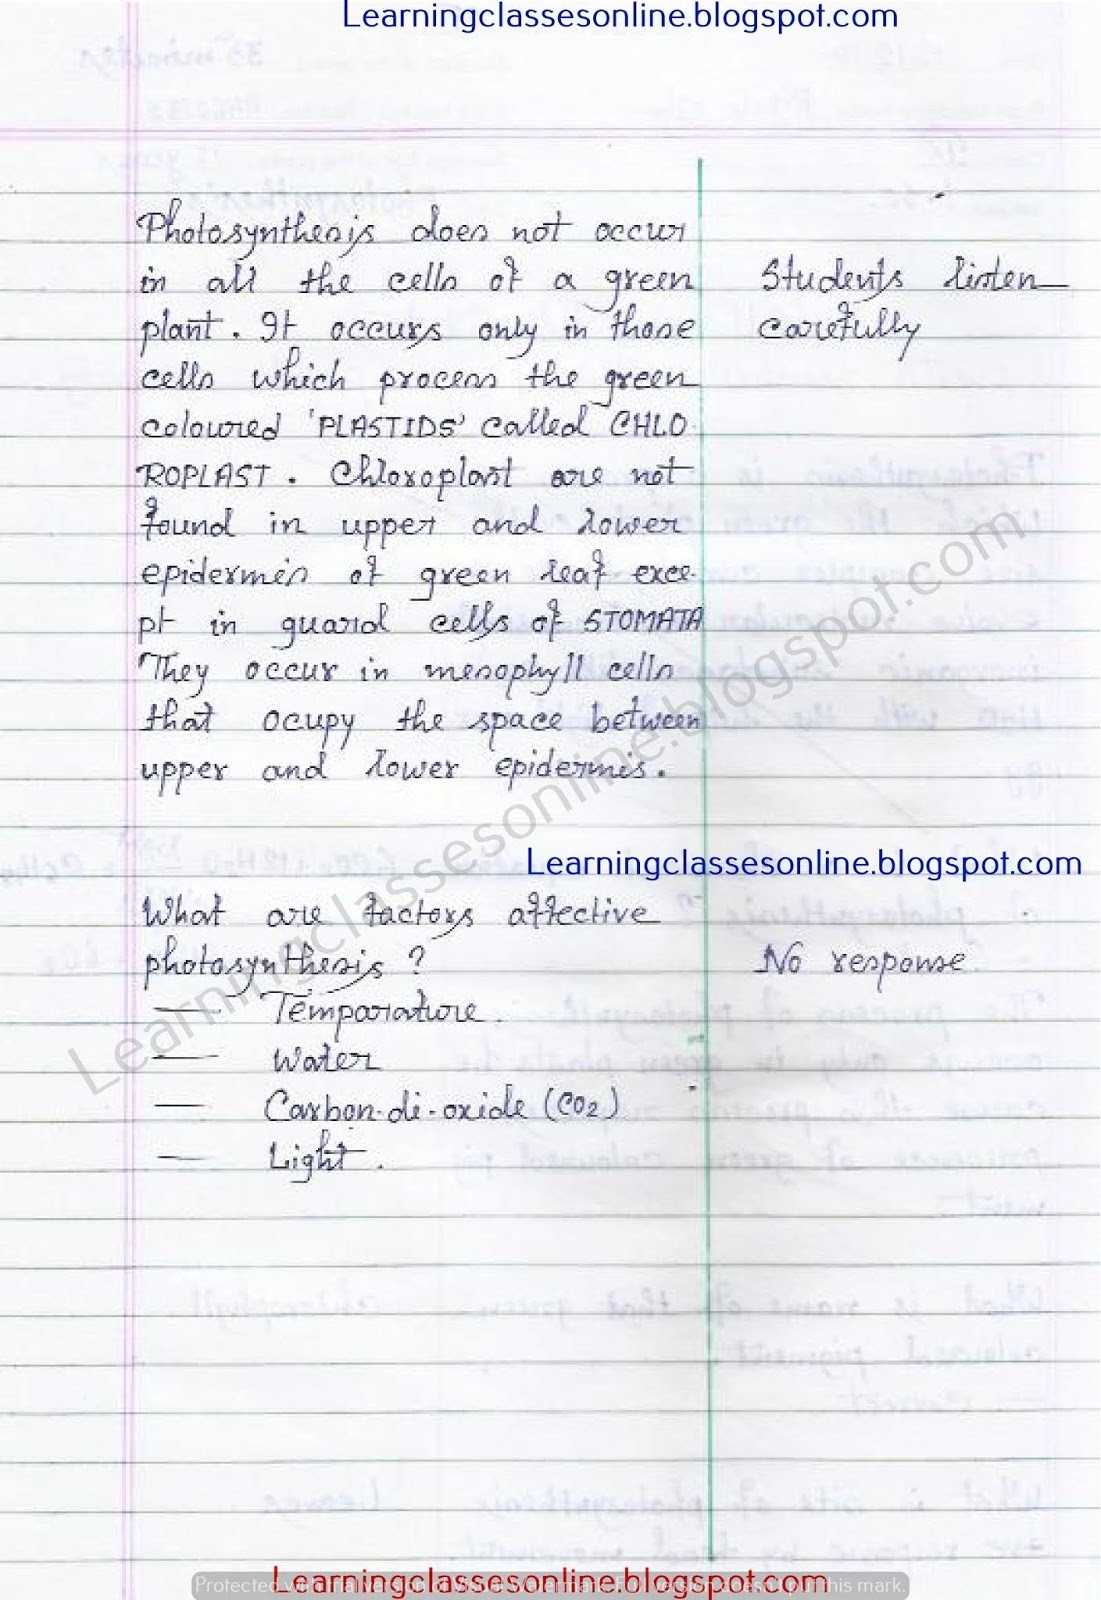 Learningclassesonline.blogspot.com
Photosynthesis does not occur
in all the cells of a green
plant. It occurs only in those
cells which process the green
coloured 'PLASTIDS' called CHLO
ROPLAST. Chloroplast are not
found in upper and lower
epidermis of green leaf exce-
pt in guard cells of STOMATA
They occur in mesophyll cells
that ocupy the space between
upper and lower epidermis.
Students listen
carefully
Learningclassesonline.blogspot.com
Learningclassesonline.blogspot.com
What are factors affective
photosynthesis ?
— Temparature.
— Water
— Carbon-di-oxide (CO2)
— Light.
No response
Learningclassesonline.blogspot.com
Protected with
this mark.